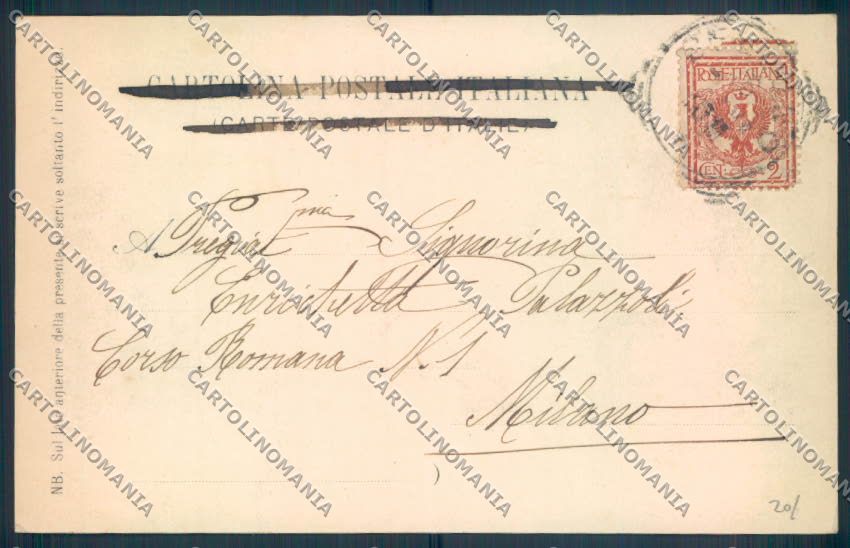 CARTOLINA POSTALE ITALIANA
(CARTE POSTALE D'ITALIE)
POSTE·ITALIANE
CENT. 2
NB. Sul lato anteriore della presente si scrive soltanto l'indirizzo.
A Pregiat^ma Signorina
Enrichetta Palazzoli
Corso Romana N. 1
Milano
20/
CARTOLINOMANIA